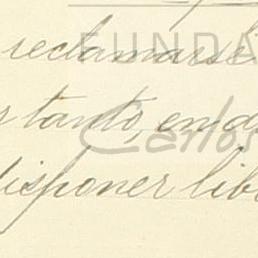 reclamarse
FUNDA
s tanto, en d
Carlos
disponer lib